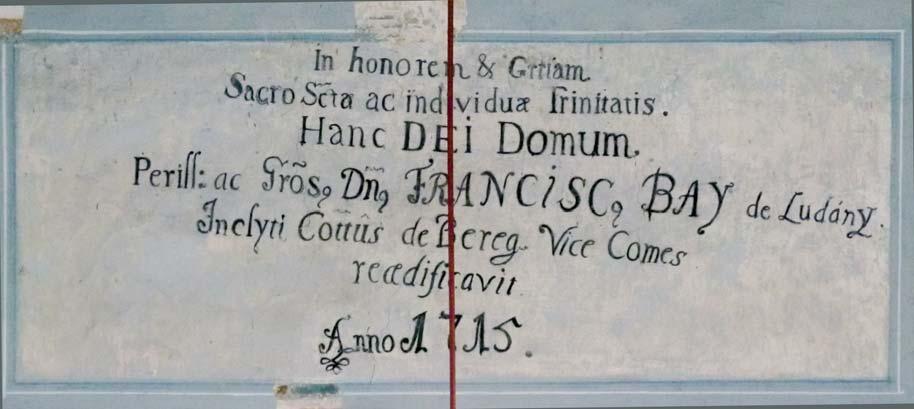 In honorem & Grtiam
Sacro Sc̃tæ ac individuæ Trinitatis.
Hanc DEI Domum.
Perill: ac Grõs, Dñ, FRANCISC, BAY de Ludány.
Inclyti Cottûs de Bereg. Vice Comes
reædificavit
Anno 1715.